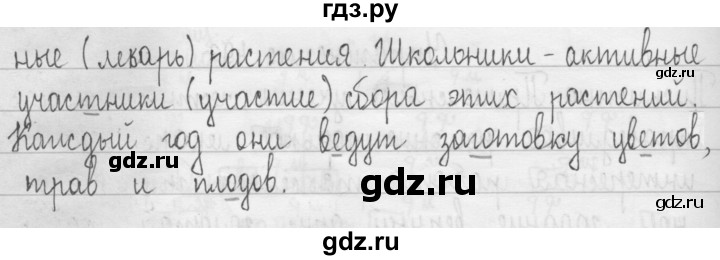 гдз.ру
ные (лекарь) растения Школьники - активные
участники (участие) сбора этих растений.
Каждый год они ведут заготовку цветов,
трав и плодов.
gdz.ru
gdz.ru
gdz.ru
gdz.ru
gdz.ru